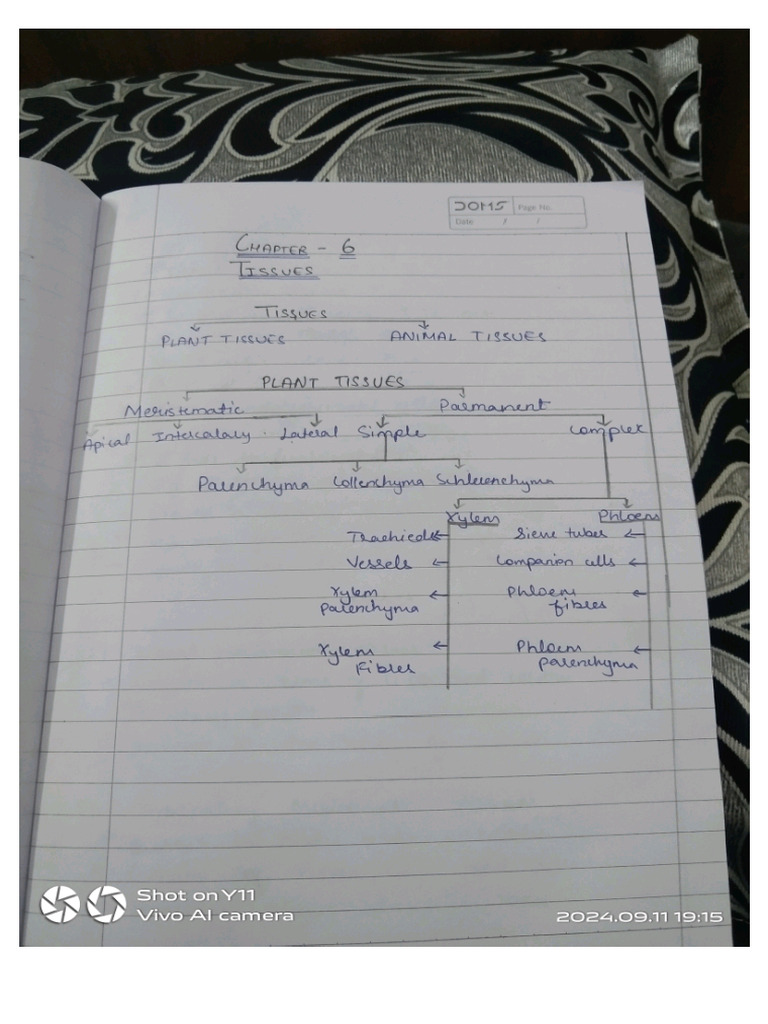 DOMS Page No.
Date / /
CHAPTER - 6
TISSUES
TISSUES
PLANT TISSUES ANIMAL TISSUES
PLANT TISSUES
Meristematic Parmanent
Apical Intercalary. Lateral Simple Complex
Parenchyma Collenchyma Schlerenchyma
Xylem Phloem
Tracheids Sieve tubes
Vessels Companion cells
Xylem Phloem
parenchyma fibres
Xylem Phloem
Fibres parenchyma
Shot on Y11
Vivo AI camera 2024.09.11 19:15